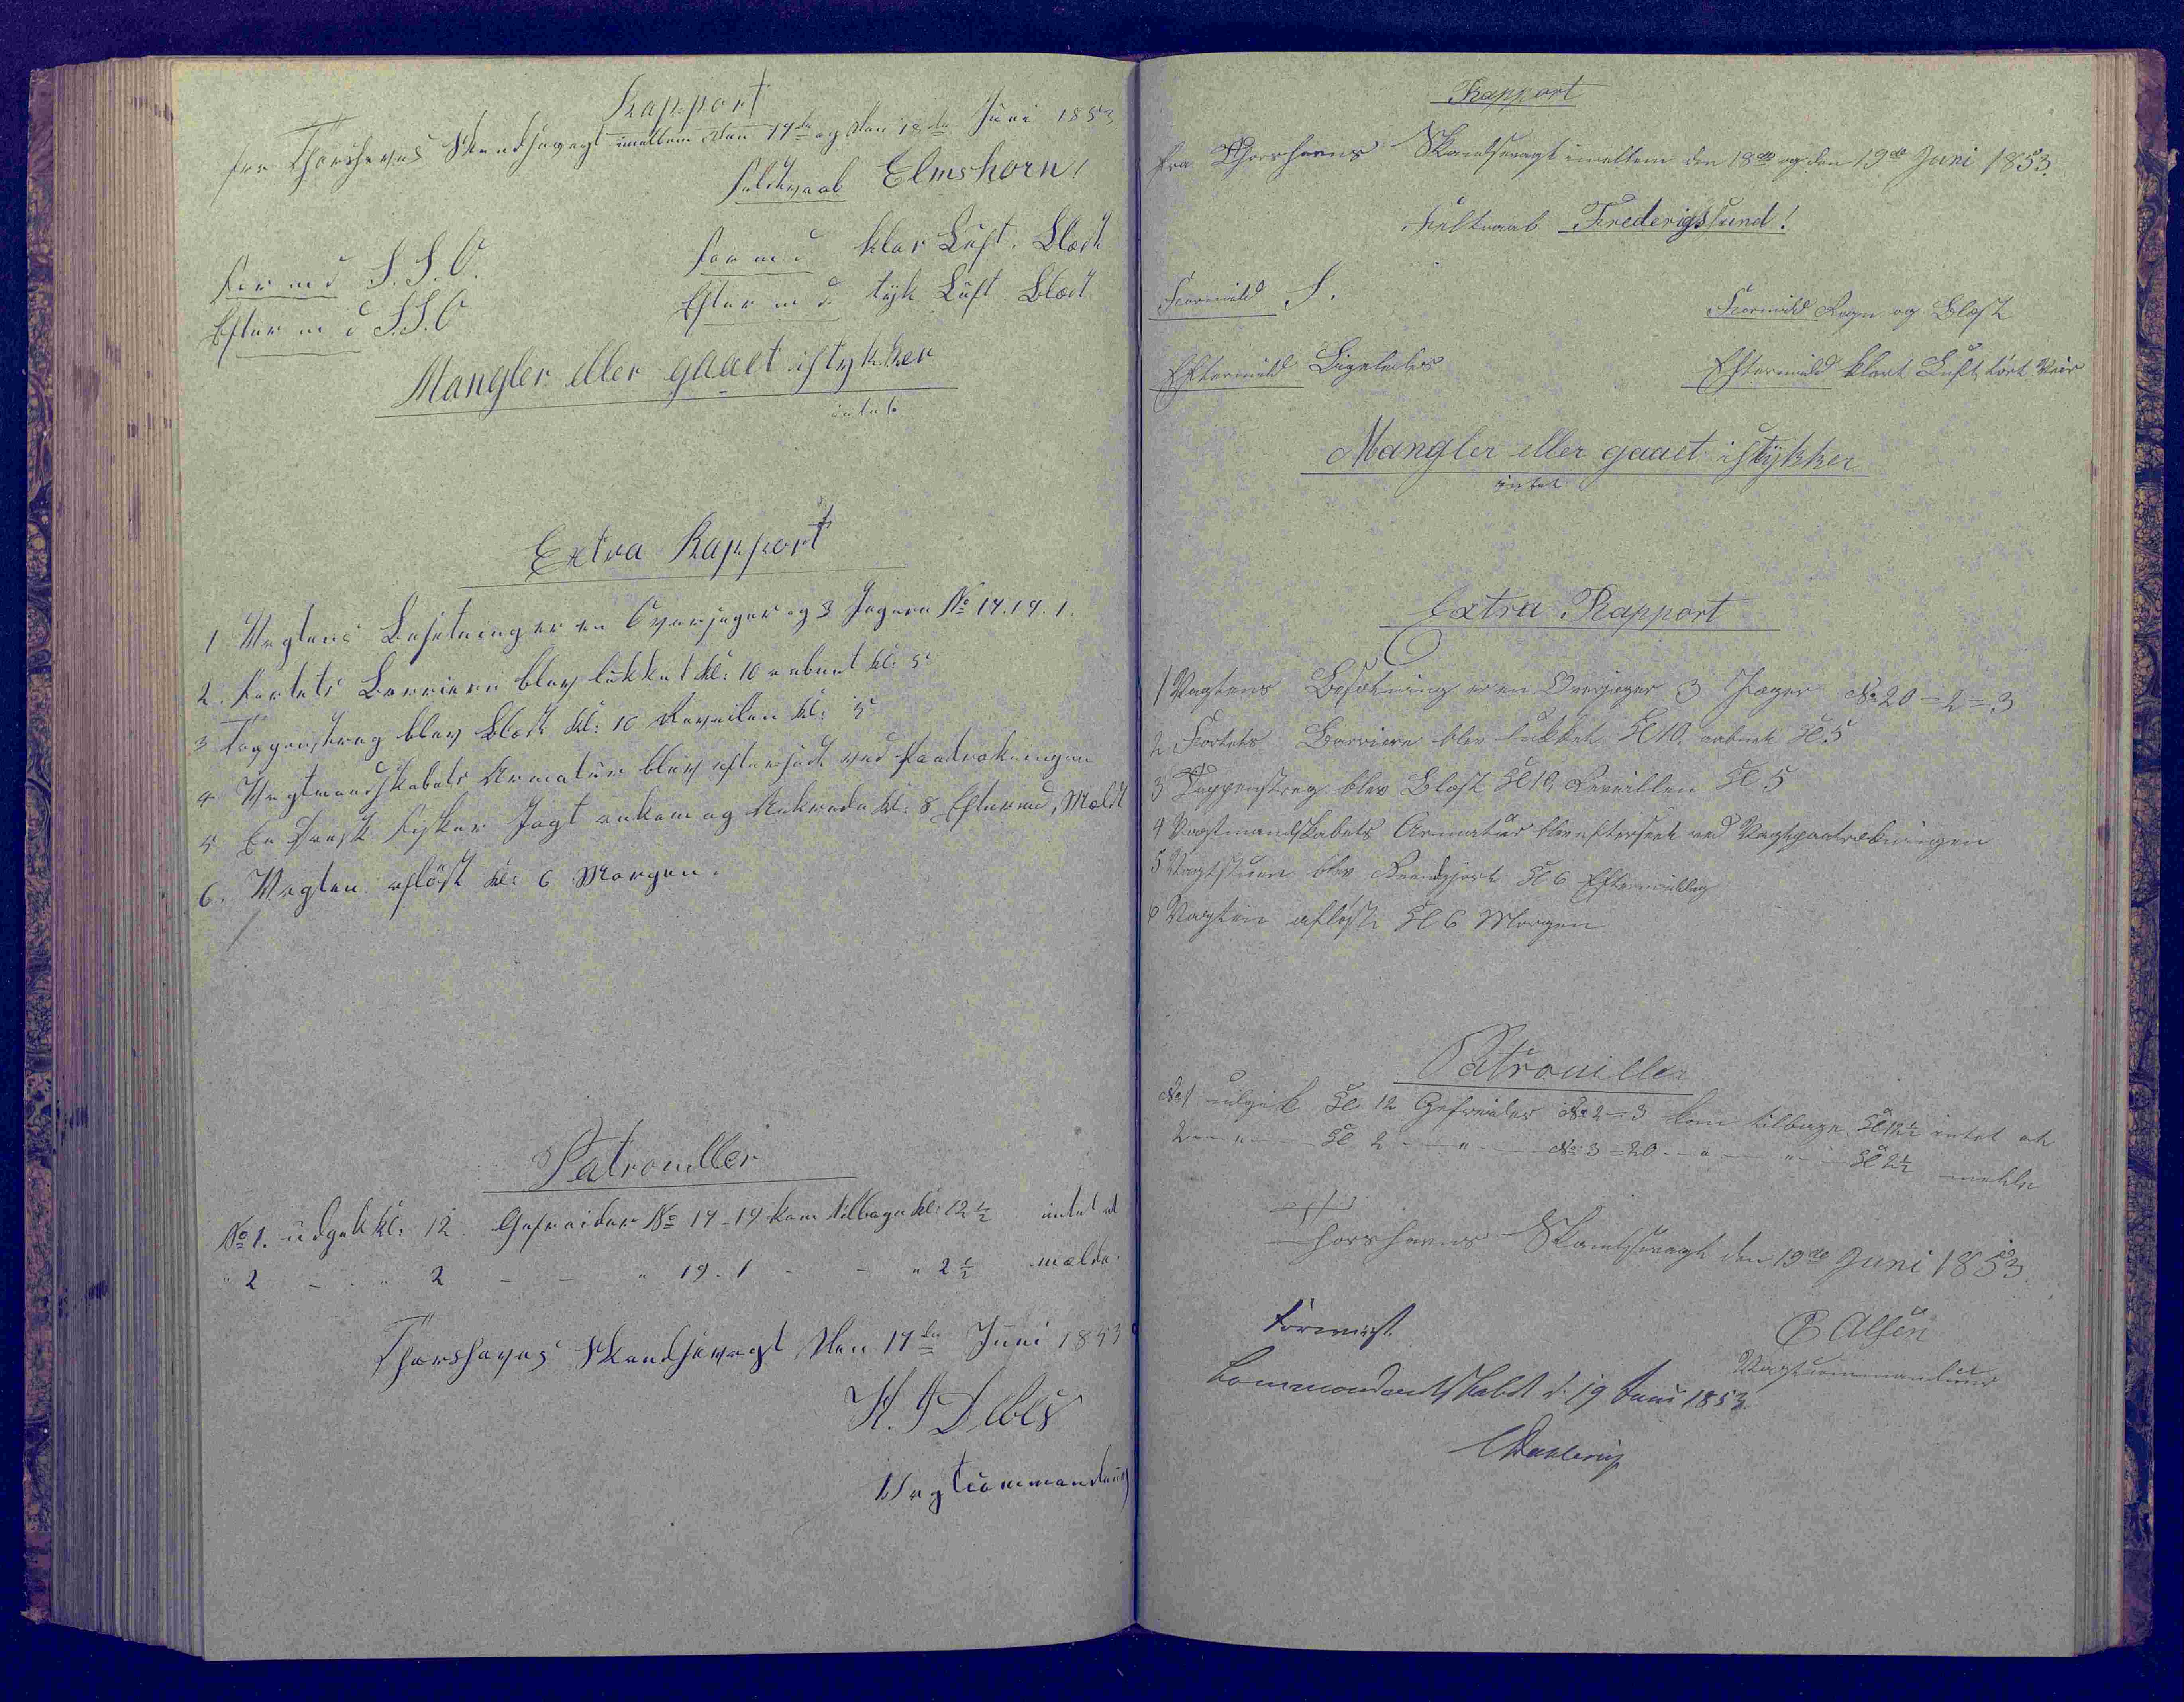 Rapport
fra Thorshavns Skandsevagt imellem den 17de og den 18de Juni 1853
Feldtraab Elmshorn!
Form d S.S.O.
Form d klar Luft. Blæst
Efterm d S.S.O
Efterm d. tyk Luft. Blæst
Mangler eller gaaet istykker
intet
Extra Rapport
1 Vagtens Besetning er en Overjæger og 3 Jægere No 17.19.1.
2. Fortets Barriere blev lukket kl: 10 aabnet kl: 5
3 Tappenstreg blev Blæst kl: 10 Reveilen kl: 5
4 Vagtmandskabets Armatur blev efterseet ved Paatrækningen
5 En Dansk Fisker Jagt ankom og Ankrede kl: 8 Efterm, Meldt
6. Vagten aflöst kl: 6 Morgen.
Patrouiller
No 1. udgik kl: 12. Gefreider No 17-19 kom tilbage kl: 12½ intet at
" 2 - - " 2 - - " 19-1 - - " 2½ melde.
Thorshavns Skandsevagt den 17de Juni 1853
H. J Debes
Vagtcommandeur
Rapport
fra Thorshavns Skandsevagt imellem den 18de og den 19de Juni 1853.
Feltraab Frederigssund!
Formidd S.
Formidd Regn og Blæst
Eftermidd Ligeledes
Eftermidd klart Luft tört Veir
Mangler eller gaaet istykker
intet
Extra Rapport
1 Vagtens Besætning er en Overjæger 3 Jæger No 20=2=3
2 Fortets Barriere blev lukket Kl 10 aabnet Kl 5
3 Tappenstreg blev Blæst Kl 10 Reveillen Kl 5
4 Vagtmandskabets Armatur blev efterseet ved Vagtpaatrækningen
5 Vagtstuen blev Reendgjort Kl 6 Eftermiddag
6 Vagten aflöst Kl 6 Morgen
Patrouiller
No 1 udgik Kl 12 Gefreider No 2=3 kom tilbage Kl 12½ intet at
2 - " - Kl 2 - " - No 3=20 - " - " - Kl 2½ melde
Thorshavns Skandsevagt den 19de Juni 1853
Forevist.
E Olsen
Vagtcommandeur
Commandantskabet d. 19 Juni 1853.
CDahlerup